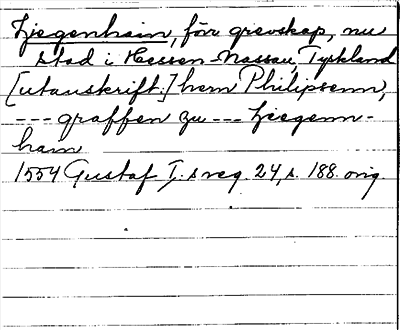 Ziegenhain, förr grevskap, nu
stad i Hessen-Nassau, Tyskland
[utanskrift:] herrn Philipsenn,
--- graffen zu --- Ziegenn-
hain
1554 Gustaf I:s reg. 24, s. 188. orig.